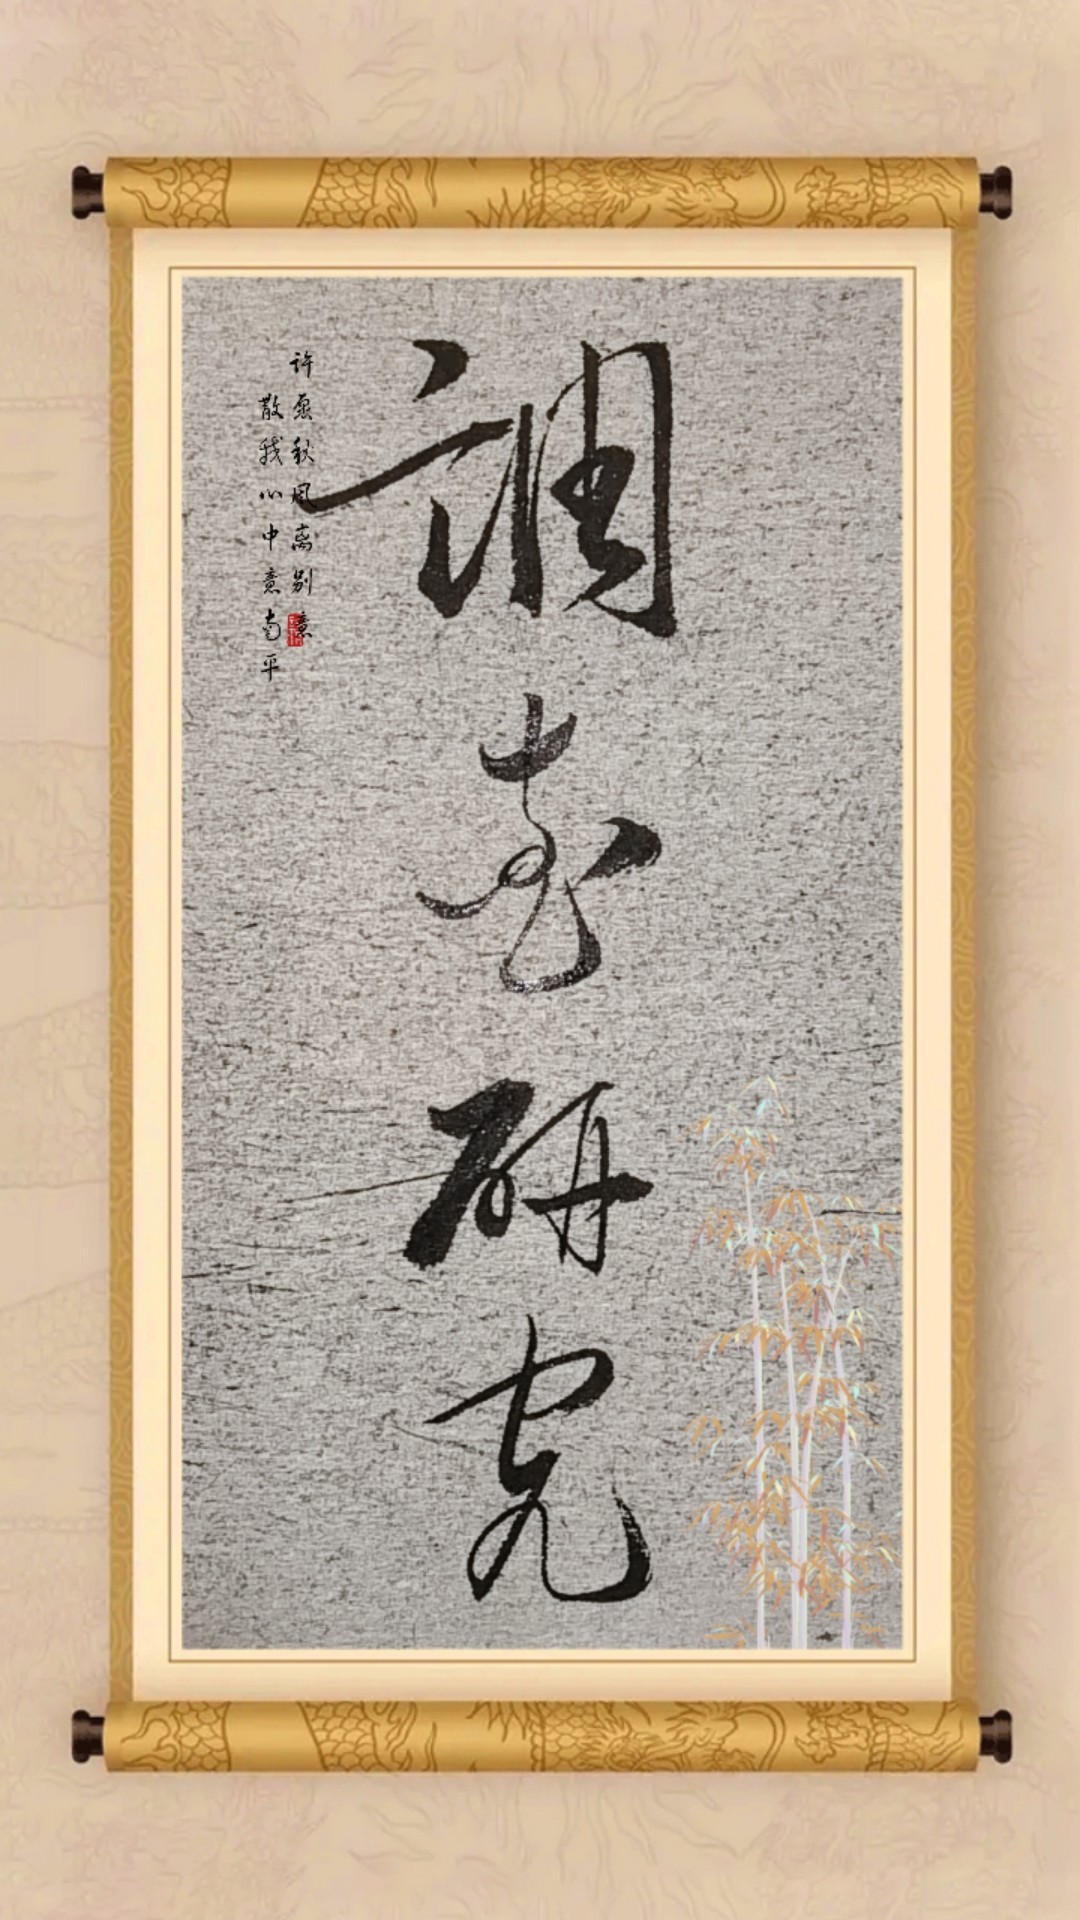 调查研究
许愿秋风离别意
散我心中意南平